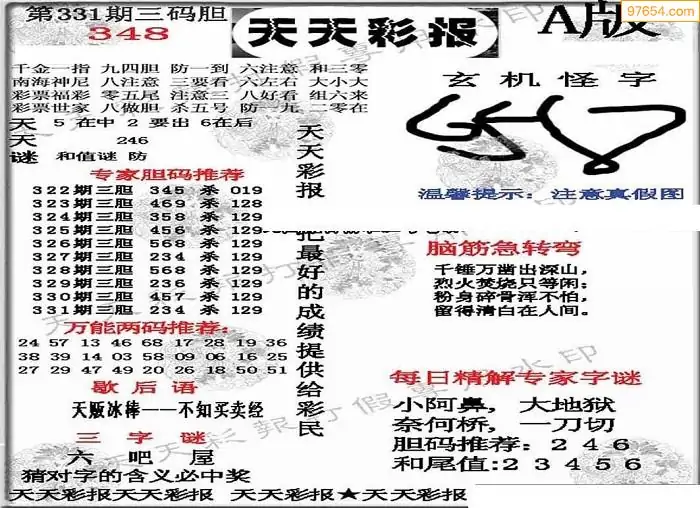 97654.com
第331期三码胆
348
天天彩报
A版
千金一指 九四胆 防一到 六注意 和三零
南海神尼 八注意 三要看 六左右 大小大
彩票福彩 零五尾 注意三 八好看 组六来
彩票世家 八做胆 杀五号 防一九 二零在
天天谜
5 在中 2 要出 6在后
246
和值谜 防
专家胆码推荐
322期三胆 345 杀 019
323期三胆 469 杀 128
324期三胆 358 杀 129
325期三胆 456 杀 129
326期三胆 568 杀 129
327期三胆 234 杀 129
328期三胆 568 杀 129
329期三胆 236 杀 129
330期三胆 457 杀 129
331期三胆 234 杀 129
万能两码推荐:
24 57 13 46 68 17 28 19 36
38 39 14 03 58 09 06 16 25
27 29 47 49 20 26 18 50 51
歇后语
天版冰棒——不知买卖经
三字谜
六 吧 屋
猜对字的含义必中奖
天天彩报
把最好的成绩提供给彩民
玄机怪字
温馨提示: 注意真假图
脑筋急转弯
千锤万凿出深山,
烈火焚烧只等闲;
粉身碎骨浑不怕,
留得清白在人间。
每日精解专家字谜
小阿鼻, 大地狱
奈何桥, 一刀切
胆码推荐: 2 4 6
和尾值: 2 3 4 5 6
天天彩报天天彩报 天天彩报★天天彩报